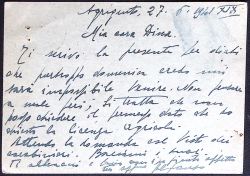 Agrigento, 27.
Mia cara Dina
Ti scrivo la presente per dirti
che purtroppo domenica credo mi
sarà impossibile venire. Non pensare
a male però; si tratta che non
posso chiedere il permesso dato che ho
chiesto la licenza agricola.
Attendo la domanda col Visto dei
carabinieri. Bacioni
Ti